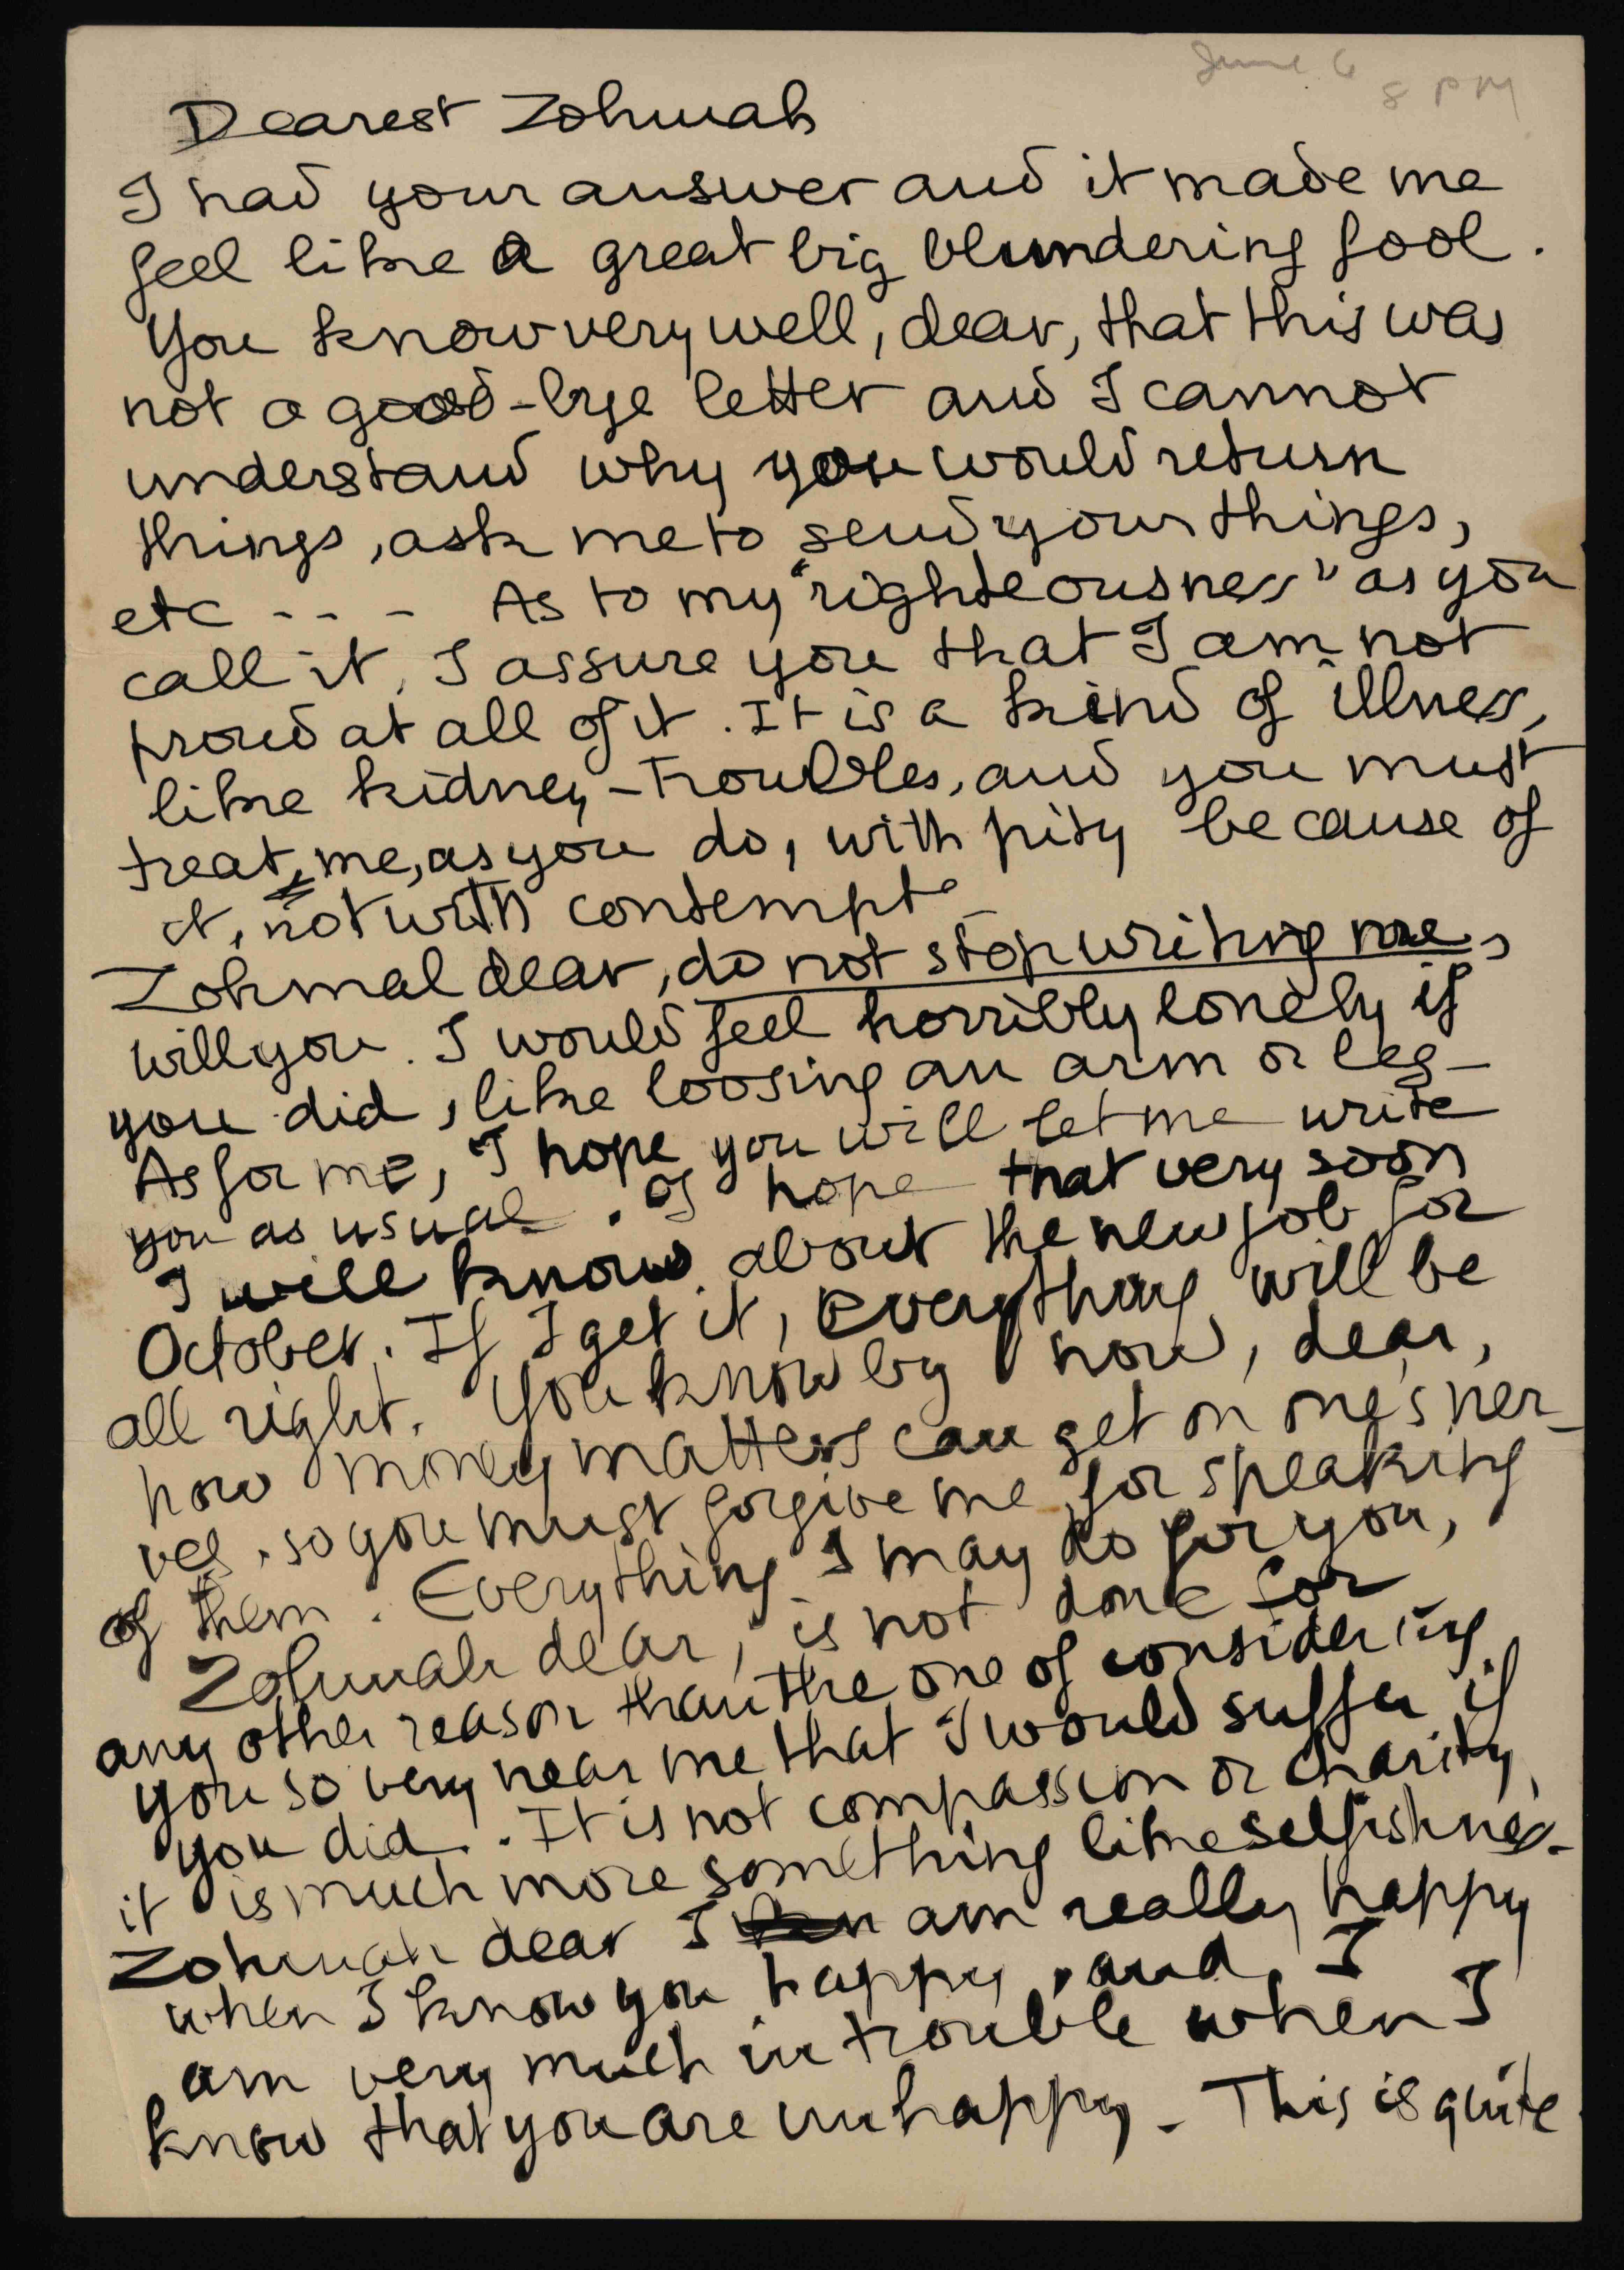 June 6
8 PM
Dearest Zohmah
I had your answer and it made me
feel like a great big blundering fool.
You know very well, dear, that this was
not a good-bye letter and I cannot
understand why you would return
things, ask me to send your things,
etc - - - As to my "righteousness" as you
call it, I assure you that I am not
proud at all of it. It is a kind of illness,
like kidney-troubles, and you must
treat me, as you do, with pity because of
it, not with contempt.
Zohmal dear, do not stop writing me,
will you. I would feel horribly lonely if
you did, like loosing an arm or leg-
As for me, I hope you will let me write
you as usual. I hope that very soon
I will know about the new job for
October. If I get it, everything will be
all right. You know by now, dear,
how money matters can get on one's ner-
ves, so you must forgive me for speaking
of them. Everything I may do for you,
Zohmah dear, is not done for
any other reason than the one of considering
you so very near me that I would suffer if
you did. It is not compassion or charity,
it is much more something like selfishness-
Zohmah dear I am really happy
when I know you happy, and I
am very much in trouble when I
know that you are unhappy - This is quite